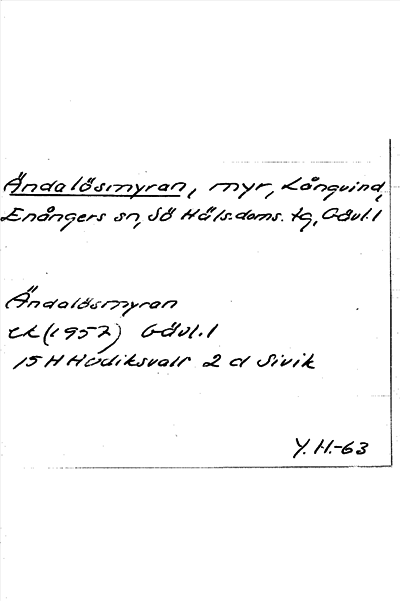 Ändalösmyran, myr, Långvind,
Enångers sn, Sö Häls.doms. tg, Gävl.l
Ändalösmyran
ek (1957) Gävl.l
15 H Hudiksvall 2 d Sivik
Y. H.-63